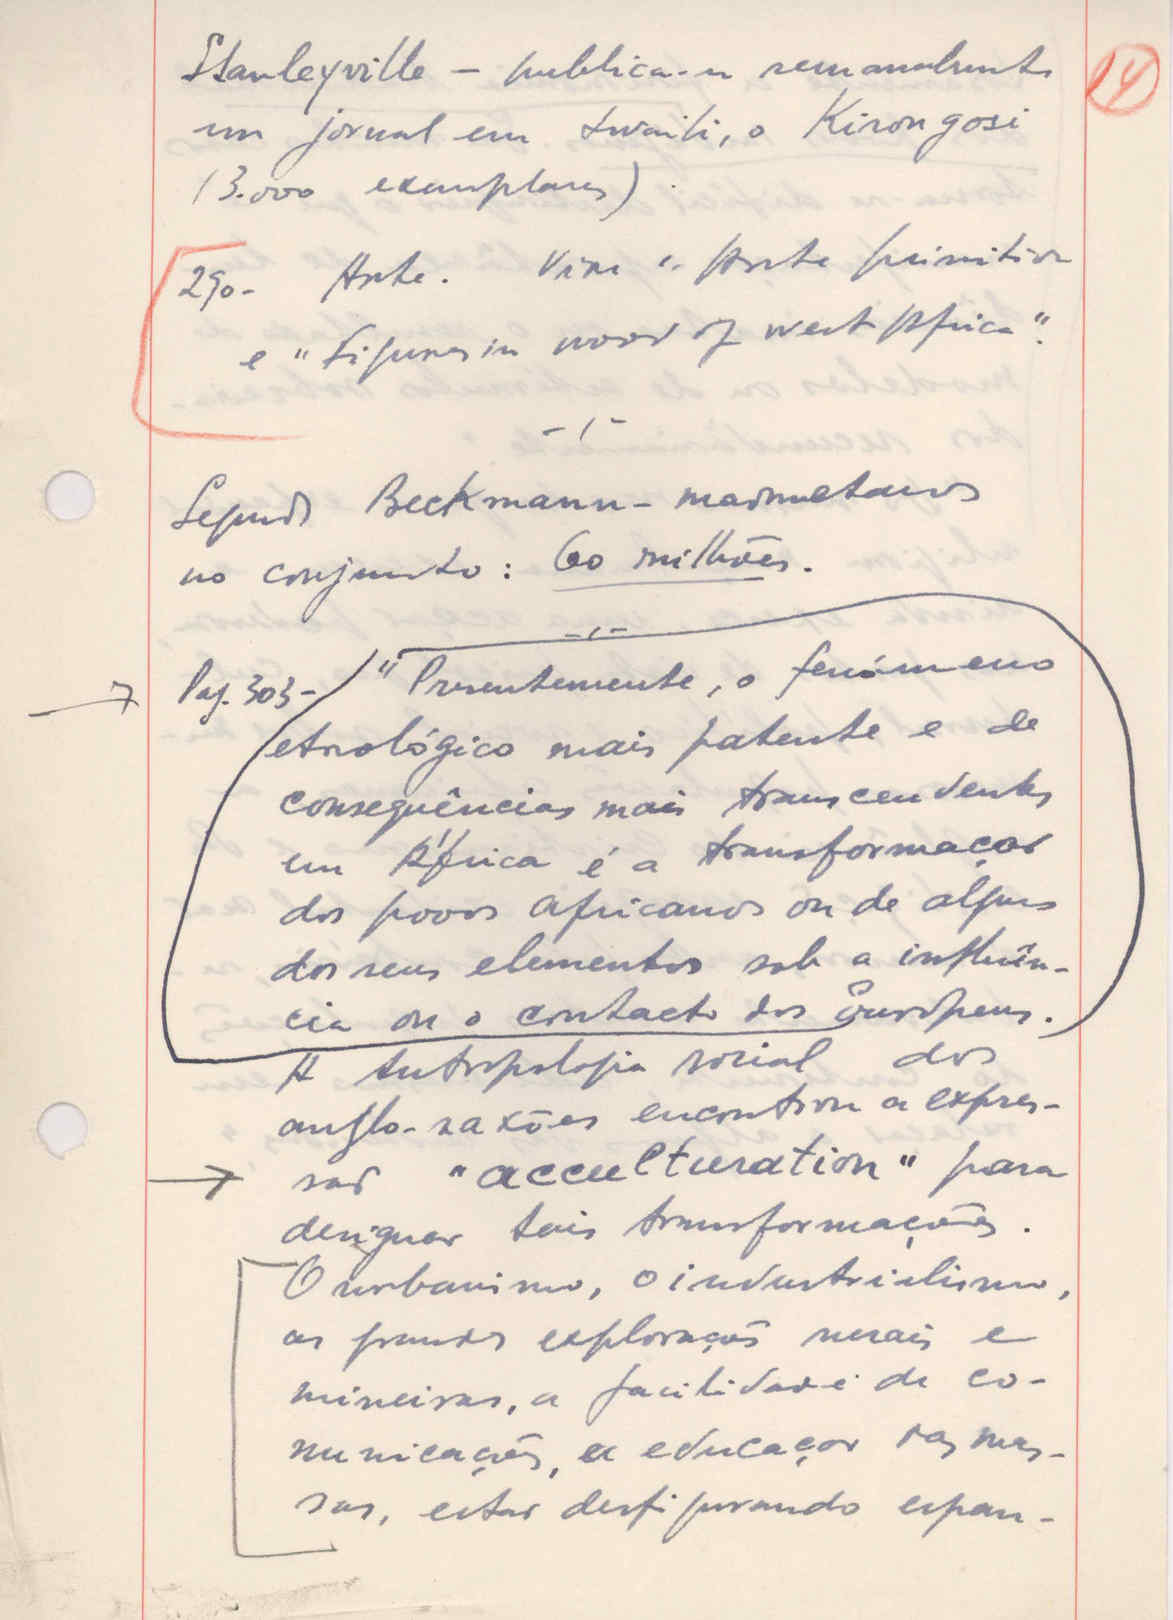 14
Stanleyville – publica-se semanalmente
um jornal em swaili, o Kirongosi
(3.000 exemplares).
290- Arte. Vide "Arte primitiva
e "Figures in wood of west Africa".
Segundo Beckmann – maometanos
no conjunto: 60 milhões.
Pag. 303 – "Presentemente, o fenómeno
etnológico mais patente e de
consequências mais transcendentes
em África é a transformaçao
dos povos africanos ou de alguns
dos seus elementos sob a influên-
cia ou o contacto dos Europeus.
A Antropologia social dos
anglo-saxões encontrou a expres-
sao "acculturation" para
designar tais transformações.
O urbanismo, o industrialismo,
as grandes explorações rurais e
mineiras, a facilidade de co-
municações, a educaçao das mas-
sas, estao desfigurando espan-